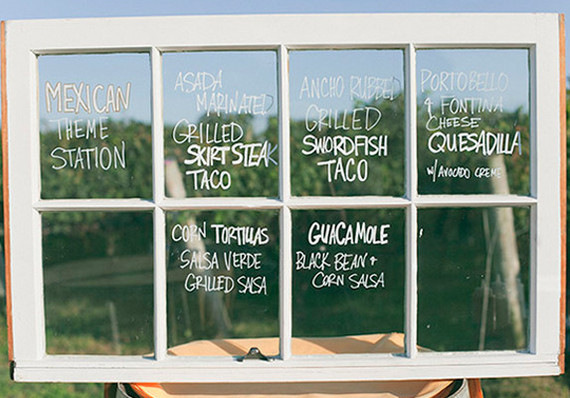 MEXICAN
THEME
STATION
ASADA
MARINATED
GRILLED
SKIRT STEAK
TACO
ANCHO RUBBED
GRILLED
SWORDFISH
TACO
PORTOBELLO
& FONTINA
CHEESE
QUESADILLA
W/ AVOCADO CREME
CORN TORTILLAS
SALSA VERDE
GRILLED SALSA
GUACAMOLE
BLACK BEAN &
CORN SALSA